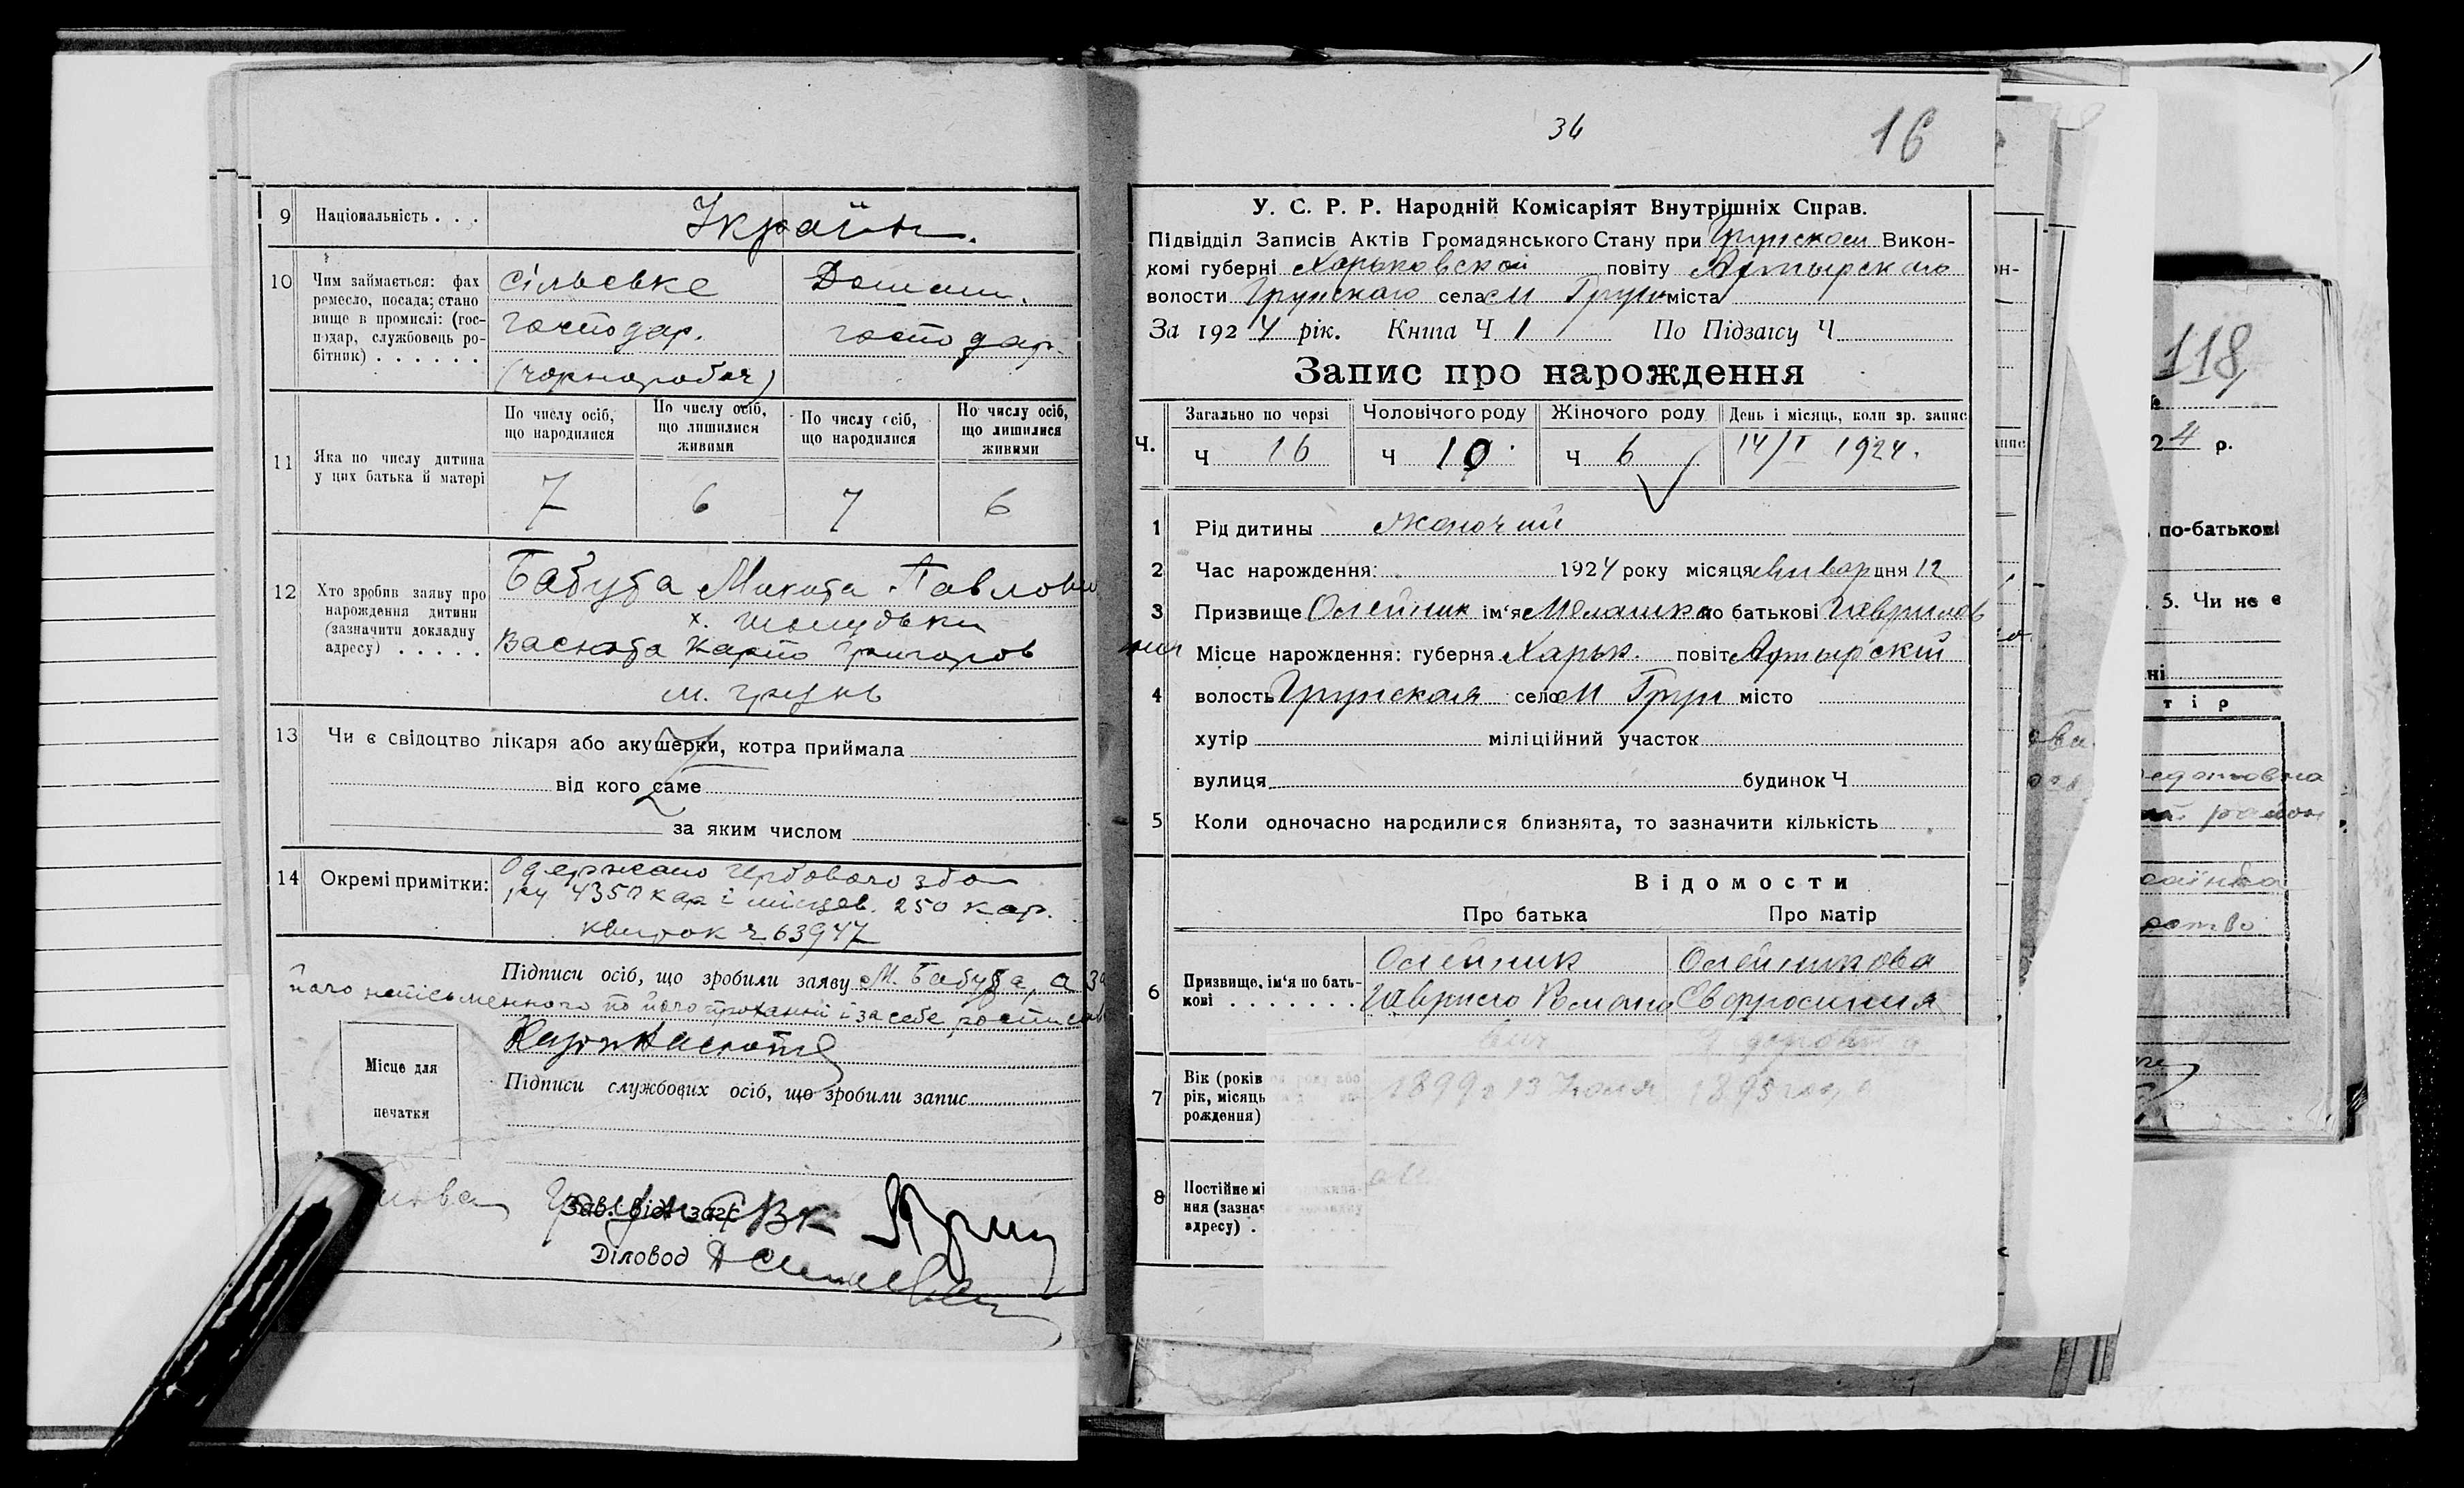 9 Національність . . . Україн.
10 Чим займається: фах ремесло, посада; стано вище в промислі: (гос- подар, службовець ро- бітник) . . . . . .
сільське господар. (чорнороб)
Домашн. господар.
11 Яка по числу дитина у цих батька й матері
По числу осіб, що народилися
По числу осіб, що лишилися живими
По числу осіб, що народилися
По числу осіб, що лишилися живими
7 6 7 6
12 Хто зробив заяву про нарождення дитини (зазначити докладну адресу) . . . . .
Бабуба Микита Павлов
х.
Васюта Карпо Григоров
м. Грунь
13 Чи є свідоцтво лікаря або акушерки, котра приймала
від кого саме
за яким числом
14 Окремі примітки:
Одержано гербового збо
ру 4350 кар і місцев. 250 кар.
квиток ч. 63947
Підписи осіб, що зробили заяву М. Бабуба, а за
його неписьменного по його проханні і за себе росписавс
Карпо Васюта
Місце для печатки
Підписи службових осіб, що зробили запис
Зав. від. загс
Діловод
36
16
У. С. Р. Р. Народній Комісаріят Внутрішніх Справ.
Підвідділ Записів Актів Громадянського Стану при Грунском Викон-
комі губерні Харьковской повіту Ахтырскаго
волости Грунскаго села м Грунь міста
За 1924 рік. Книга Ч 1 По Підзагсу Ч
Запис про нарождення
Ч. Загально по черзі Чоловічого роду Жіночого роду День і місяць, коли зр. запис
Ч 16 Ч 10 Ч 6 14/I 1924.
1 Рід дитины жіночий
2 Час нарождення: 1924 року місяця Январ дня 12
3 Призвище Олейник ім'я Мелашка по батькові Гаврилов
ния
4 Місце нарождення: губерня Харьк. повіт Ахтырскій
волость Грунская село м Грун місто
хутір міліційний участок
вулиця будинок Ч
5 Коли одночасно народилися близнята, то зазначити кількість
Відомости
Про батька Про матір
6 Призвище, ім'я по бать- кові . . . . . . .
Олейник Гаврило Романо вич
Олейникова Евфросиния
7 Вік (років рік, місяць рождення)
1899 г 13 Июля 1895 год
8 Постійне мі ння (зазнач адресу) .
118
24 р.
по-батькові
5. Чи не є
ні
тір